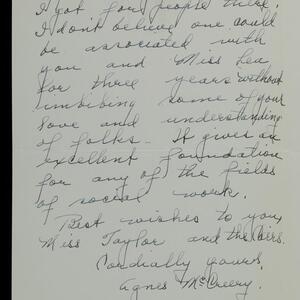 I got for people there.
I don't believe one could
be associated with
you and Miss Lea
for three years without
imbibing some of your
love and understanding
of folks. It gives an
excellent foundation
for any of the fields
of social work.
Best wishes to you,
Miss Taylor and the
Cordially yours,
Agnes McCreery.